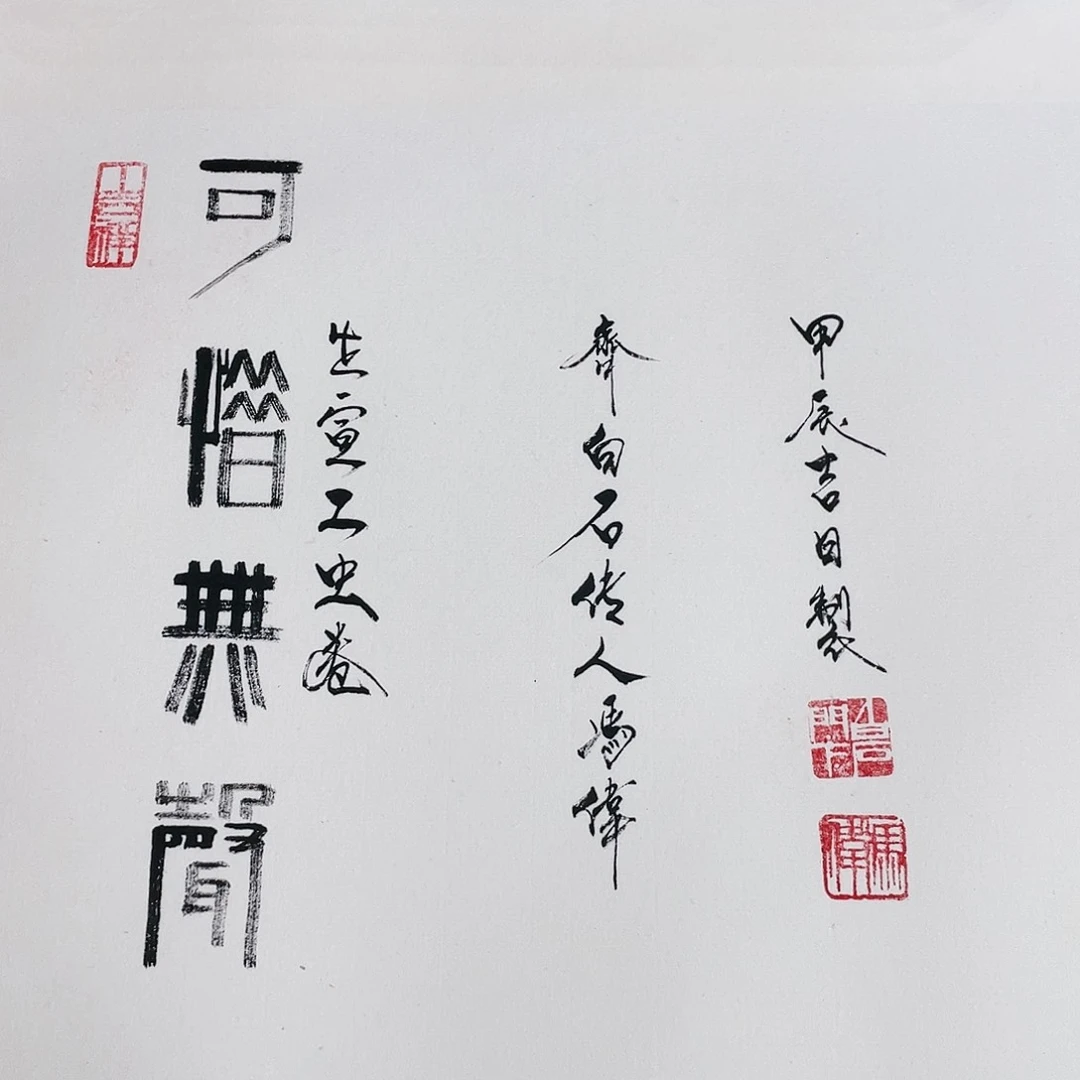 可惜無聲
生宣工虫卷
齊白石传人馮偉
甲辰吉日製
馮偉